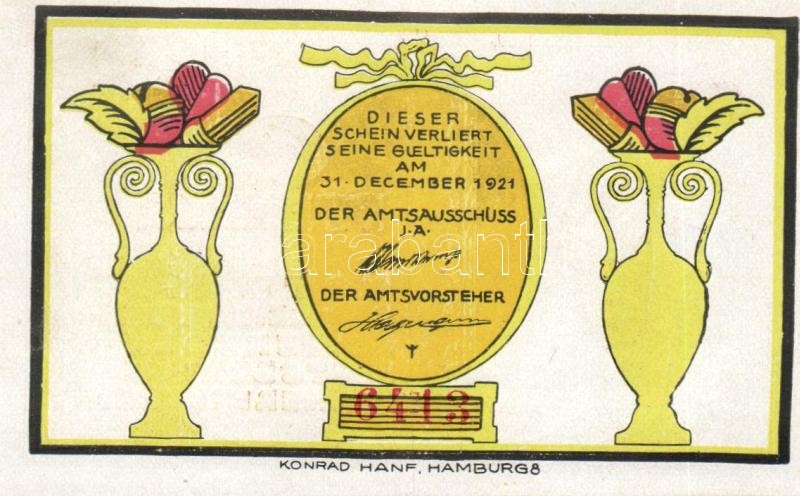 DIESER
SCHEIN VERLIERT
SEINE GUELTIGKEIT
AM
31. DECEMBER 1921
DER AMTSAUSSCHUSS
J.A.
DER AMTSVORSTEHER
6413
KONRAD HANF, HAMBURG 8